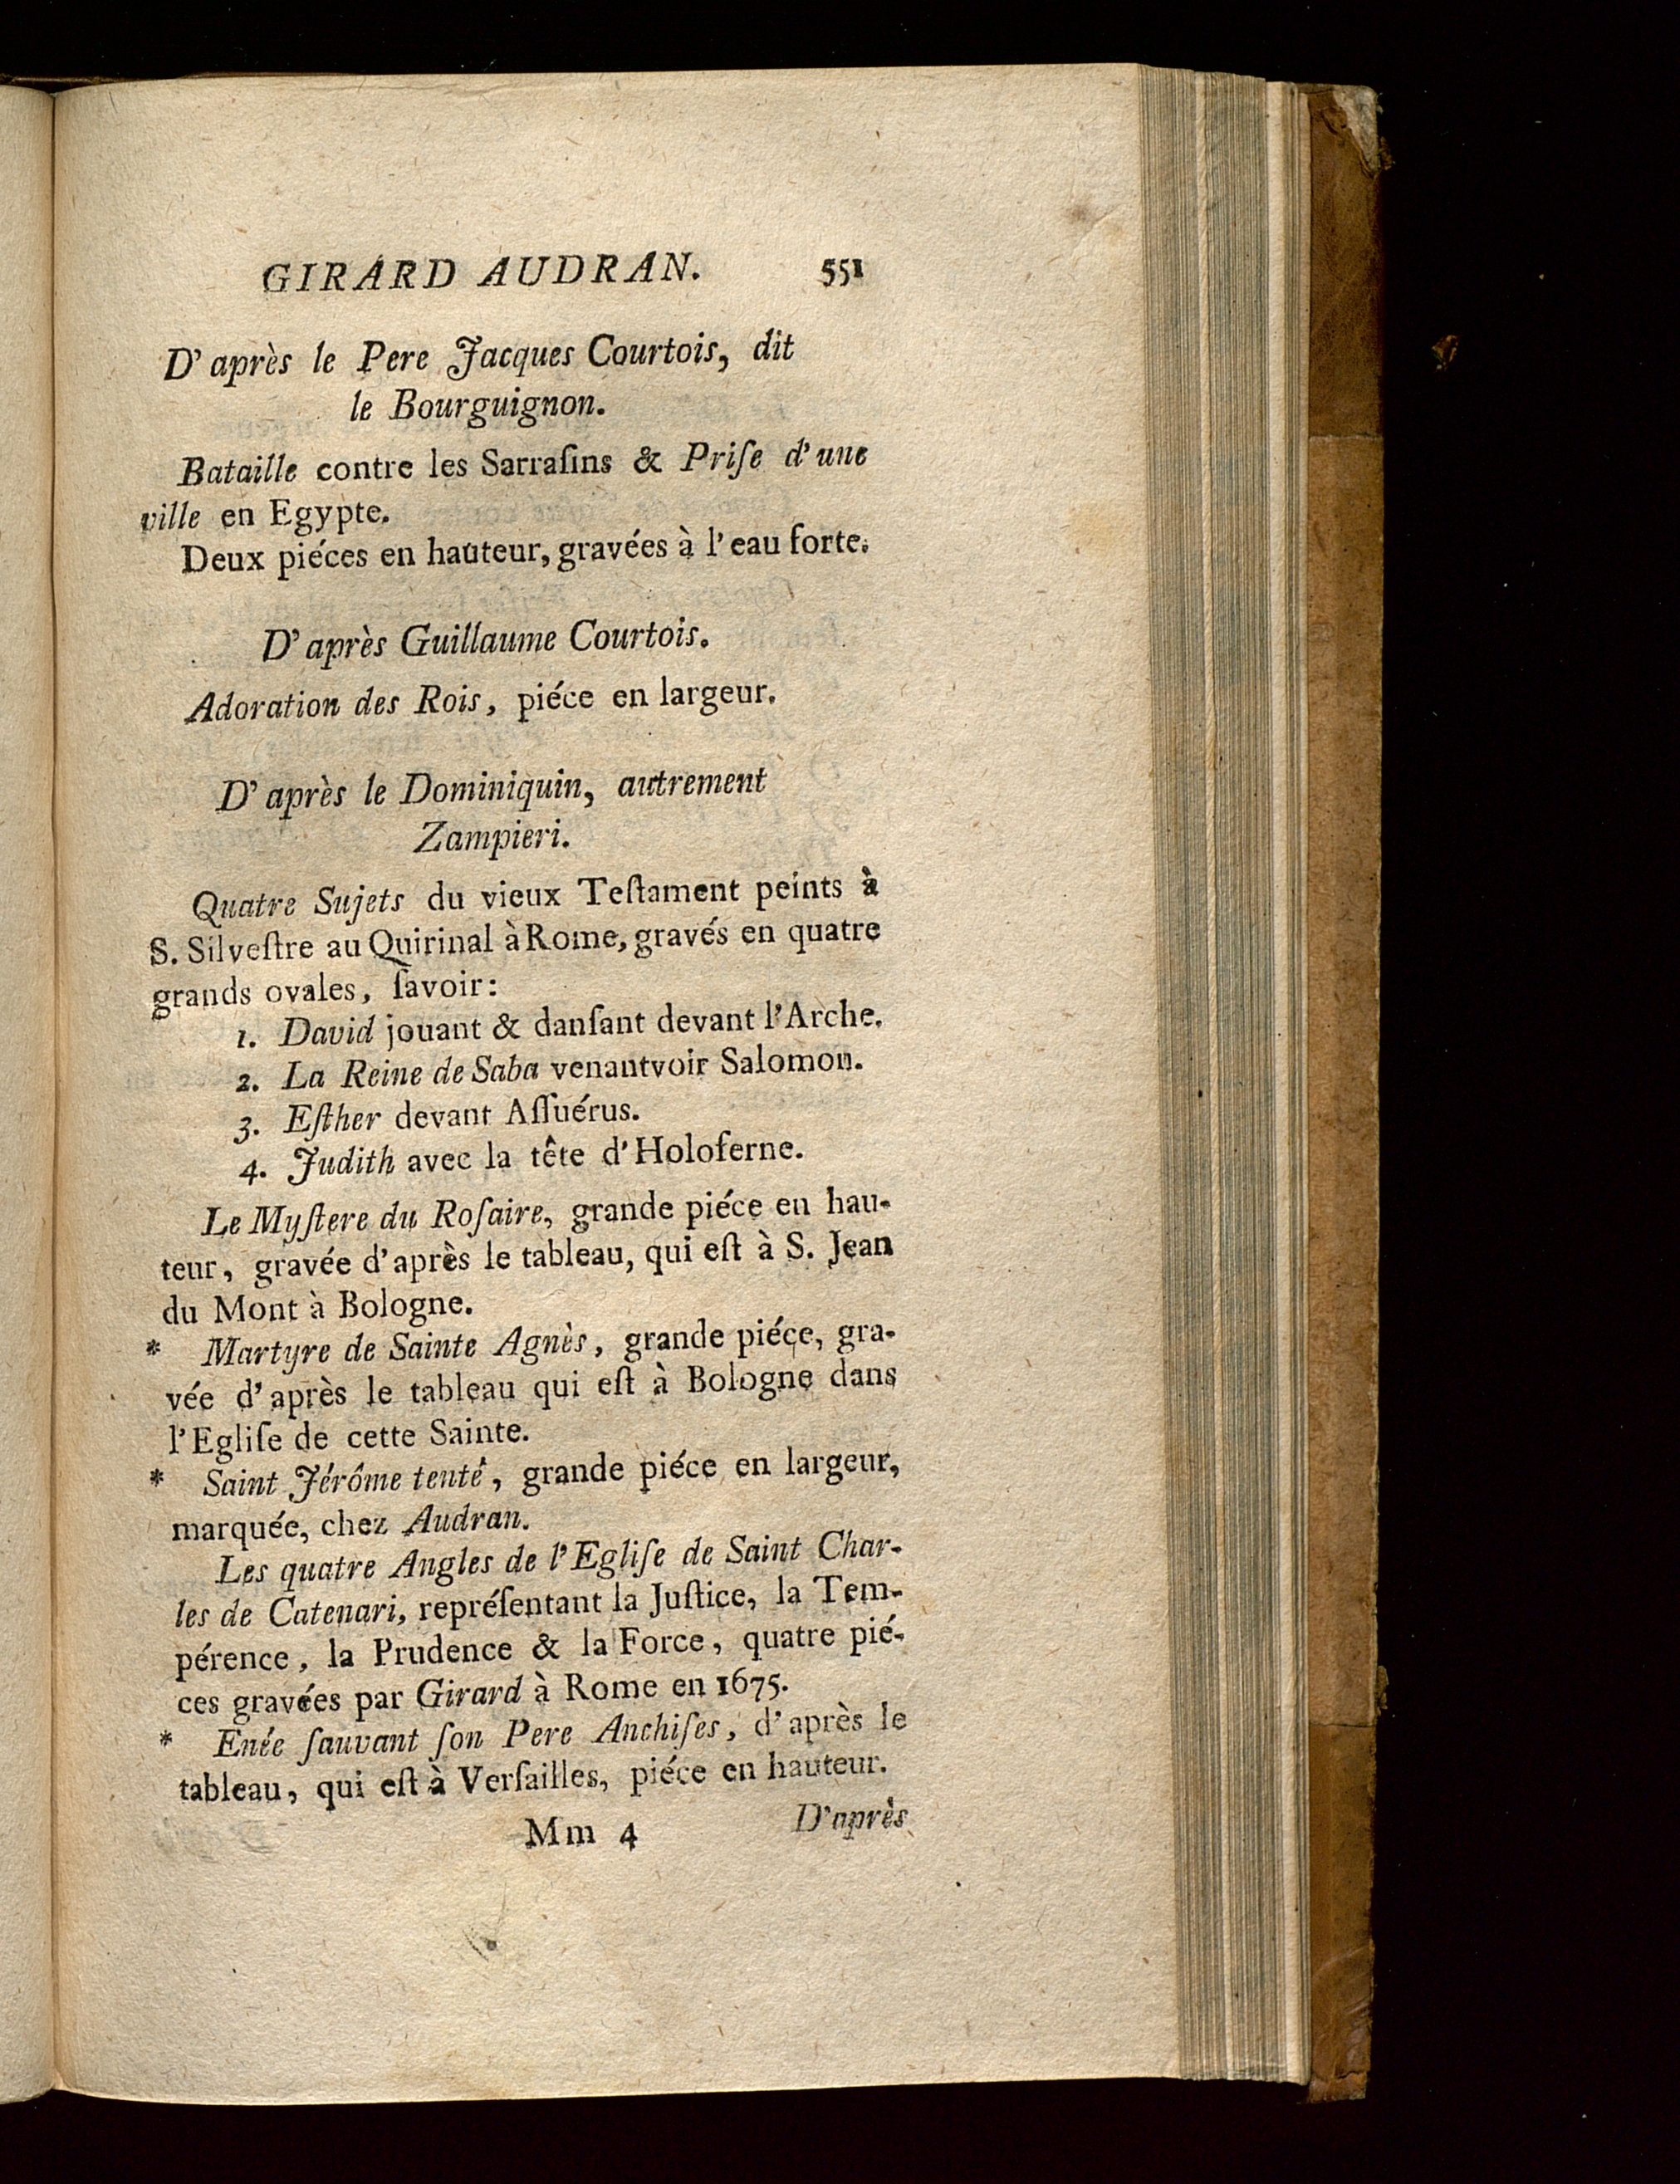 GIRARD AUDRAN. 551
D'après le Pere Jacques Courtois, dit
le Bourguignon.
Bataille contre les Sarraſins & Priſe d'une
ville en Egypte.
Deux piéces en hauteur, gravées à l'eau forte.
D'après Guillaume Courtois.
Adoration des Rois, piéce en largeur.
D'après le Dominiquin, autrement
Zampieri.
Quatre Sujets du vieux Teſtament peints à
S. Silveſtre au Quirinal à Rome, gravés en quatre
grands ovales, ſavoir:
1. David jouant & danſant devant l'Arche.
2. La Reine de Saba venantvoir Salomon.
3. Eſther devant Aſſuérus.
4. Judith avec la tête d'Holoferne.
Le Myſtere du Roſaire, grande piéce en hau-
teur, gravée d'après le tableau, qui eſt à S. Jean
du Mont à Bologne.
* Martyre de Sainte Agnès, grande piéce, gra-
vée d'après le tableau qui eſt à Bologne dans
l'Egliſe de cette Sainte.
* Saint Jérôme tenté, grande piéce en largeur,
marquée, chez Audran.
Les quatre Angles de l'Egliſe de Saint Char-
les de Catenari, repréſentant la Juſtice, la Tem-
pérence, la Prudence & la Force, quatre pié-
ces gravées par Girard à Rome en 1675.
* Enée ſauvant ſon Pere Anchiſes, d'après le
tableau, qui eſt à Verſailles, piéce en hauteur.
Mm 4 D'après